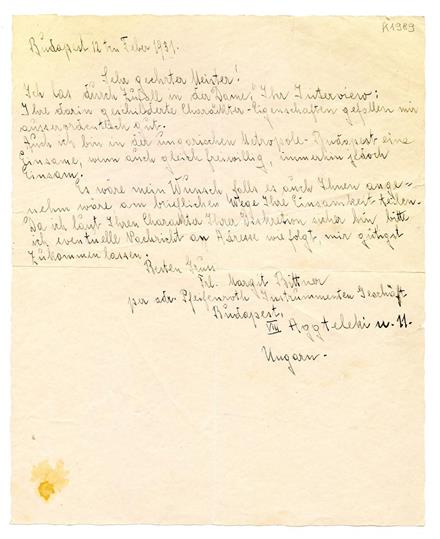 K1989
Budapest 12 ten Feber 1931.
Sehr geehrter Meister!
Ich las durch Zufall in der Dame, Ihr Interview:
Ihre darin geschilderte Charäkter-Eigenschaften gefallen mir
aussergrdentlich gut.
Auch ich bin in der ungarischen Metropole-Budapest eine
Einsame, wenn auch gleich freiwillig, immerhin jedoch
Einsam.
Es wäre mein Wunsch, falls es auch Ihnen ange-
nehm wäre am brieflichen Wege Ihre Einsamkeit teilen.
Da ich laut Ihren Charackter Ihrer Diskretion sicher bin bitte
ich eventuelle Nachricht an Adresse wie folgt, mir gütigst
zukommen lassen.
Besten Gruss
Frl. Margit Bittner
per adr. Pfeifenroth Instrummenten Geschäft
Budapest,
VIII Aggteleki u. 11.
Ungarn.